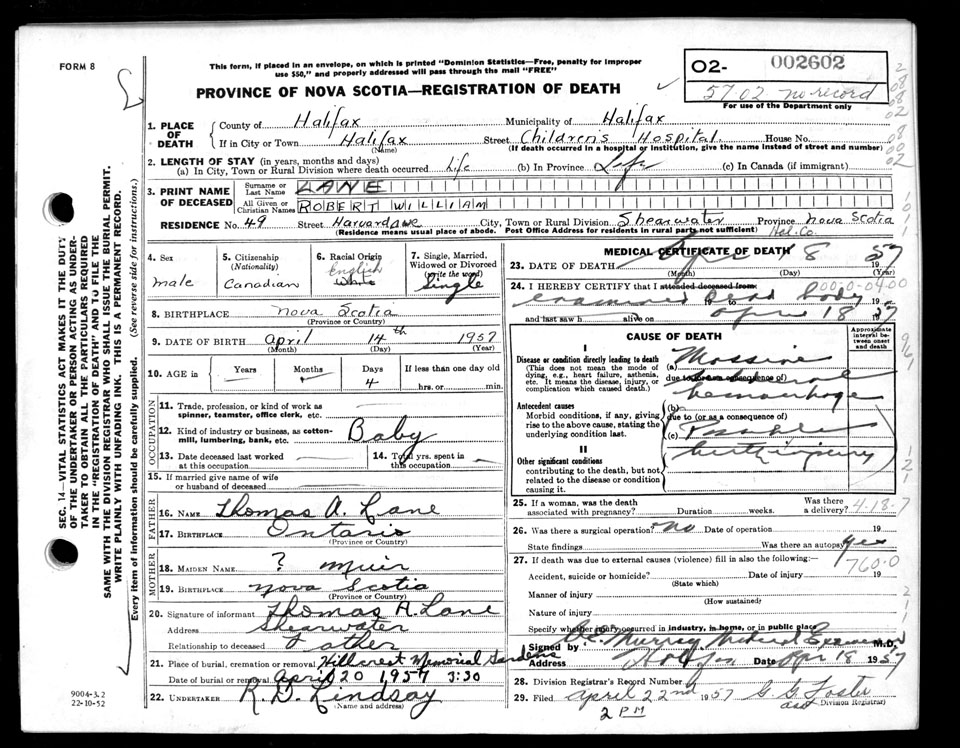 FORM 8
This form, if placed in an envelope, on which is printed "Dominion Statistics—Free, penalty for improper
use $50," and properly addressed will pass through the mail "FREE"
PROVINCE OF NOVA SCOTIA—REGISTRATION OF DEATH
O2- 002602
5702 no record
For use of the Department only
1. PLACE OF DEATH
County of Halifax Municipality of Halifax
If in City or Town Halifax Street Children's Hospital House No.
(Name) (If death occurred in a hospital or institution, give the name instead of street and number)
2. LENGTH OF STAY (in years, months and days)
(a) In City, Town or Rural Division where death occurred Life (b) In Province Life (c) In Canada (if immigrant)
3. PRINT NAME OF DECEASED
Surname or Last Name LANE
All Given or Christian Names ROBERT WILLIAM
RESIDENCE No. 49 Street Harvard Ave City, Town or Rural Division Shearwater Province Nova Scotia
(Residence means usual place of abode. Post Office Address for residents in rural parts not sufficient) Hal. Co.
4. Sex
male
5. Citizenship (Nationality)
Canadian
6. Racial Origin
English
White
7. Single, Married, Widowed or Divorced (write the word)
Single
8. BIRTHPLACE Nova Scotia
(Province or Country)
9. DATE OF BIRTH April 14th 1957
(Month) (Day) (Year)
10. AGE in Years Months Days 4 If less than one day old hrs. or min.
OCCUPATION
11. Trade, profession, or kind of work as spinner, teamster, office clerk, etc.
12. Kind of industry or business, as cotton-mill, lumbering, bank, etc. Baby
13. Date deceased last worked at this occupation
14. Total yrs. spent in this occupation
15. If married give name of wife or husband of deceased
FATHER
16. NAME Thomas A. Lane
17. BIRTHPLACE Ontario
(Province or Country)
MOTHER
18. MAIDEN NAME ? Muir
19. BIRTHPLACE Nova Scotia
(Province or Country)
20. Signature of informant Thomas A. Lane
Address Shearwater
Relationship to deceased Father
21. Place of burial, cremation or removal Hillcrest Memorial Gardens
Date of burial or removal April 20 1957 3:30
22. UNDERTAKER R. D. Lindsay
(Name and address)
MEDICAL CERTIFICATE OF DEATH
23. DATE OF DEATH 8 1957
(Month) (Day) (Year)
24. I HEREBY CERTIFY that I attended deceased from
examined dead body 19
and last saw h alive on April 18 1957
CAUSE OF DEATH
Approximate interval between onset and death
I
Disease or condition directly leading to death
(This does not mean the mode of dying, e.g., heart failure, asthenia, etc. It means the disease, injury, or complication which caused death.)
(a) Massive
due to (or as a consequence of)
hemorrhage
Antecedent causes
Morbid conditions, if any, giving rise to the above cause, stating the underlying condition last.
(b)
due to (or as a consequence of)
(c) Possible
birth injury
II
Other significant conditions
contributing to the death, but not related to the disease or condition causing it.
25. If a woman, was the death associated with pregnancy? Duration weeks. Was there a delivery? 4-18-7
26. Was there a surgical operation? No Date of operation 19
State findings Was there an autopsy? Yes
27. If death was due to external causes (violence) fill in also the following:— 760-0
Accident, suicide or homicide? Date of injury 19
(State which)
Manner of injury
(How sustained)
Nature of injury
Specify whether injury occurred in industry, in home, or in public place
Signed by Murray Medical Examiner M.D.
Address Halifax Date Apr 18 1957
28. Division Registrar's Record Number
29. Filed April 22nd 1957 G. G. Foster
(Division Registrar)
2 PM
SEC. 14—VITAL STATISTICS ACT MAKES IT THE DUTY
OF THE UNDERTAKER OR PERSON ACTING AS UNDER-
TAKER TO OBTAIN ALL THE PARTICULARS REQUIRED
IN THE "REGISTRATION OF DEATH" AND TO FILE THE
SAME WITH THE DIVISION REGISTRAR WHO SHALL ISSUE THE BURIAL PERMIT.
WRITE PLAINLY WITH UNFADING INK. THIS IS A PERMANENT RECORD.
Every item of information should be carefully supplied. (See reverse side for instructions.)
9004-3.2
22-10-52